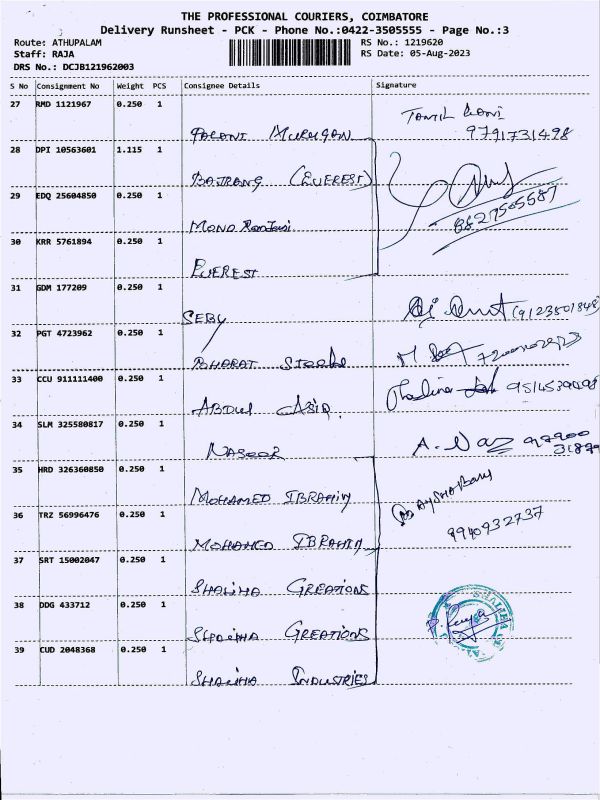 THE PROFESSIONAL COURIERS, COIMBATORE
Delivery Runsheet - PCK - Phone No.:0422-3505555 - Page No.:3
Route: ATHUPALAM RS No.: 1219620
Staff: RAJA RS Date: 05-Aug-2023
DRS No.: DCJB121962003
S No Consignment No Weight PCS Consignee Details Signature
27 RMD 1121967 0.250 1
PALANI MURUGAN 9791731498
28 DPI 10563601 1.115 1
BAJRANG (EVEREST)
29 EDQ 25604850 0.250 1
MONO
30 KRR 5761894 0.250 1
EVEREST
31 GDM 177209 0.250 1
SEBY
32 PGT 4723962 0.250 1
BHARAT
33 CCU 911111400 0.250 1
ABDUL
34 SLM 325580817 0.250 1
NASEER A. Naz
35 HRD 326360850 0.250 1
MOHAMED IBRAHIM
36 TRZ 56996476 0.250 1 9940932737
MOHAMED IBRAHIM
37 SRT 15002047 0.250 1
SHALIHA CREATIONS
38 DDG 433712 0.250 1
SHALIHA CREATIONS
39 CUD 2048368 0.250 1
SHALIHA INDUSTRIES